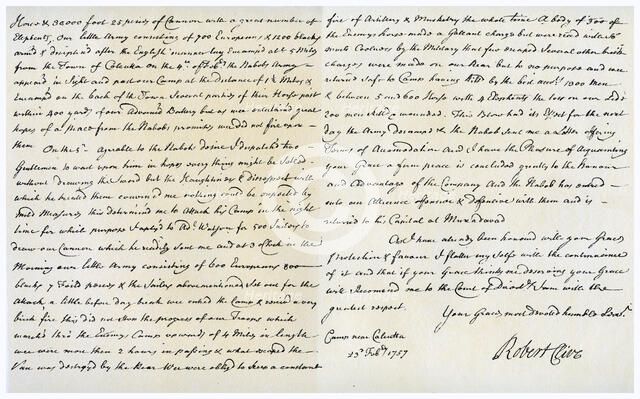 Horse & 30000 foot 25 pieces of Cannon with a great number of
Elephants, Our little Army consisting of 700 Europeans & 1200 blacks
arm'd & disciplin'd after the English manner lay Encamp'd at 5 Miles
from the Town of Calcutta on the 4th of Feby the Nabobs Army
appear'd in Sight and past our Camp at the Distance of 1½ Miles &
Encamp'd on the back of the Town Several parties of their Horse past
within 400 yards of our Advanced Battery but as we entertain'd great
hopes of a Peace from the Nabobs promises we did not fire upon
them On the 5th agreable to the Nabobs desire I dispatch'd two
Gentlemen to wait upon him in hopes every thing might be Settled
without drawing the Sword but the Haughtiness & disrespect with
which he treated them convinced me nothing could be expected by
Mild Measures this determined me to attack his Camp in the night
time for which purpose I apply'd to Adml Watson for 500 Sailors to
draw our Cannon which he readily Sent me and at 3 Clock in the
Morning our little Army consisting of 600 Europeans 800
blacks 7 Field pieces & the Sailors abovementioned Set out for the
Attack a little before Day break we enter'd the Camp & receiv'd a very
brisk fire this did not Stop the progress of our Troops which
march'd thro' the Enemys Camp upwards of 4 Miles in length
wee were more then 2 hours in passing & what escaped the
Van was destroy'd by the Rear Wee were obliged to keep a constant
fire of Artillery & Musketry the whole time A body of 300 of
the Enemys horse made a Gallant charge but were receiv'd with so
much Coolness by the Military that few escaped Several other brisk
charges were made on our Rear but to no purpose and we
returned Safe to Camp having kill'd by the best accts 1300 Men
& between 5 and 600 Horse with 4 Elephants the loss on our Side
200 men kill'd & wounded. This Blow had its Effect for the next
day the Army Decamp'd & the Nabob Sent me a letter offering
Terms of Accomodation And I have the Pleasure of Acquainting
your Grace a firm peace is concluded greatly to the Honour
and Advantage of the Company And the Nabob has entred
into an Alliance offensive & Defensive with them and is
returned to his Capital at Muxadavad
As I have already been honoured with your Graces
Protection & favour I flatter my Selfe with the continuance
of it and that if your Grace thinks me deserving your Grace
will Recomend me to the Court of Directors I am with the
greatest respect.
Your Graces most devoted humble Servt
Camp near Calcutta
23d Feby 1757
Robert Clive